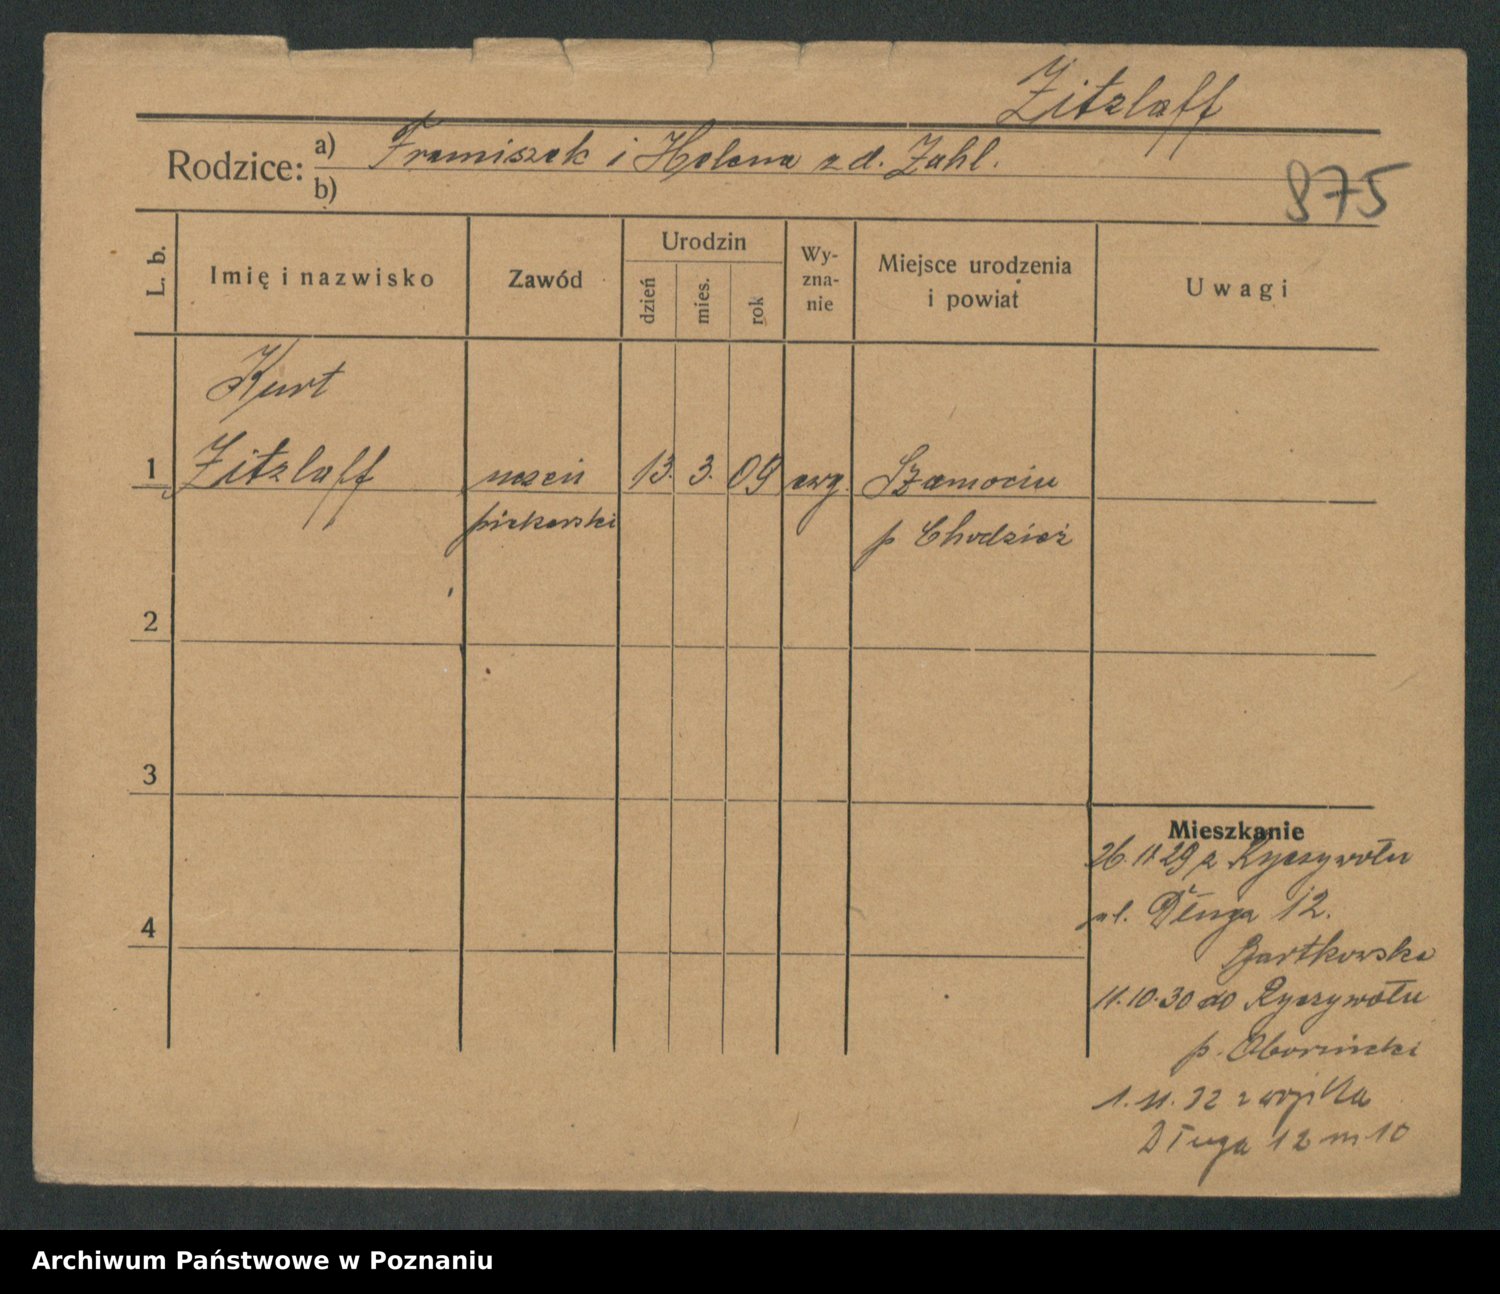 Zitzlaff
Rodzice: a) Franciszek i Helena z d. Zahl.
b)
875
L. b.
Imię i nazwisko
Zawód
Urodzin
dzień
mies.
rok
Wy-
zna-
nie
Miejsce urodzenia
i powiat
Uwagi
Kurt
1 Zitzlaff uczeń 13. 3. 09 ewg. Szamocin
piekarski p Chodzież
2
3
4
Mieszkanie
26.11 29 z Ryczywołu
ul. Długa 12.
Bartkowska
11.10.30 do Ryczywołu
p. Obornicki
1.11.32 z wojska
Długa 12 m 10
Archiwum Państwowe w Poznaniu